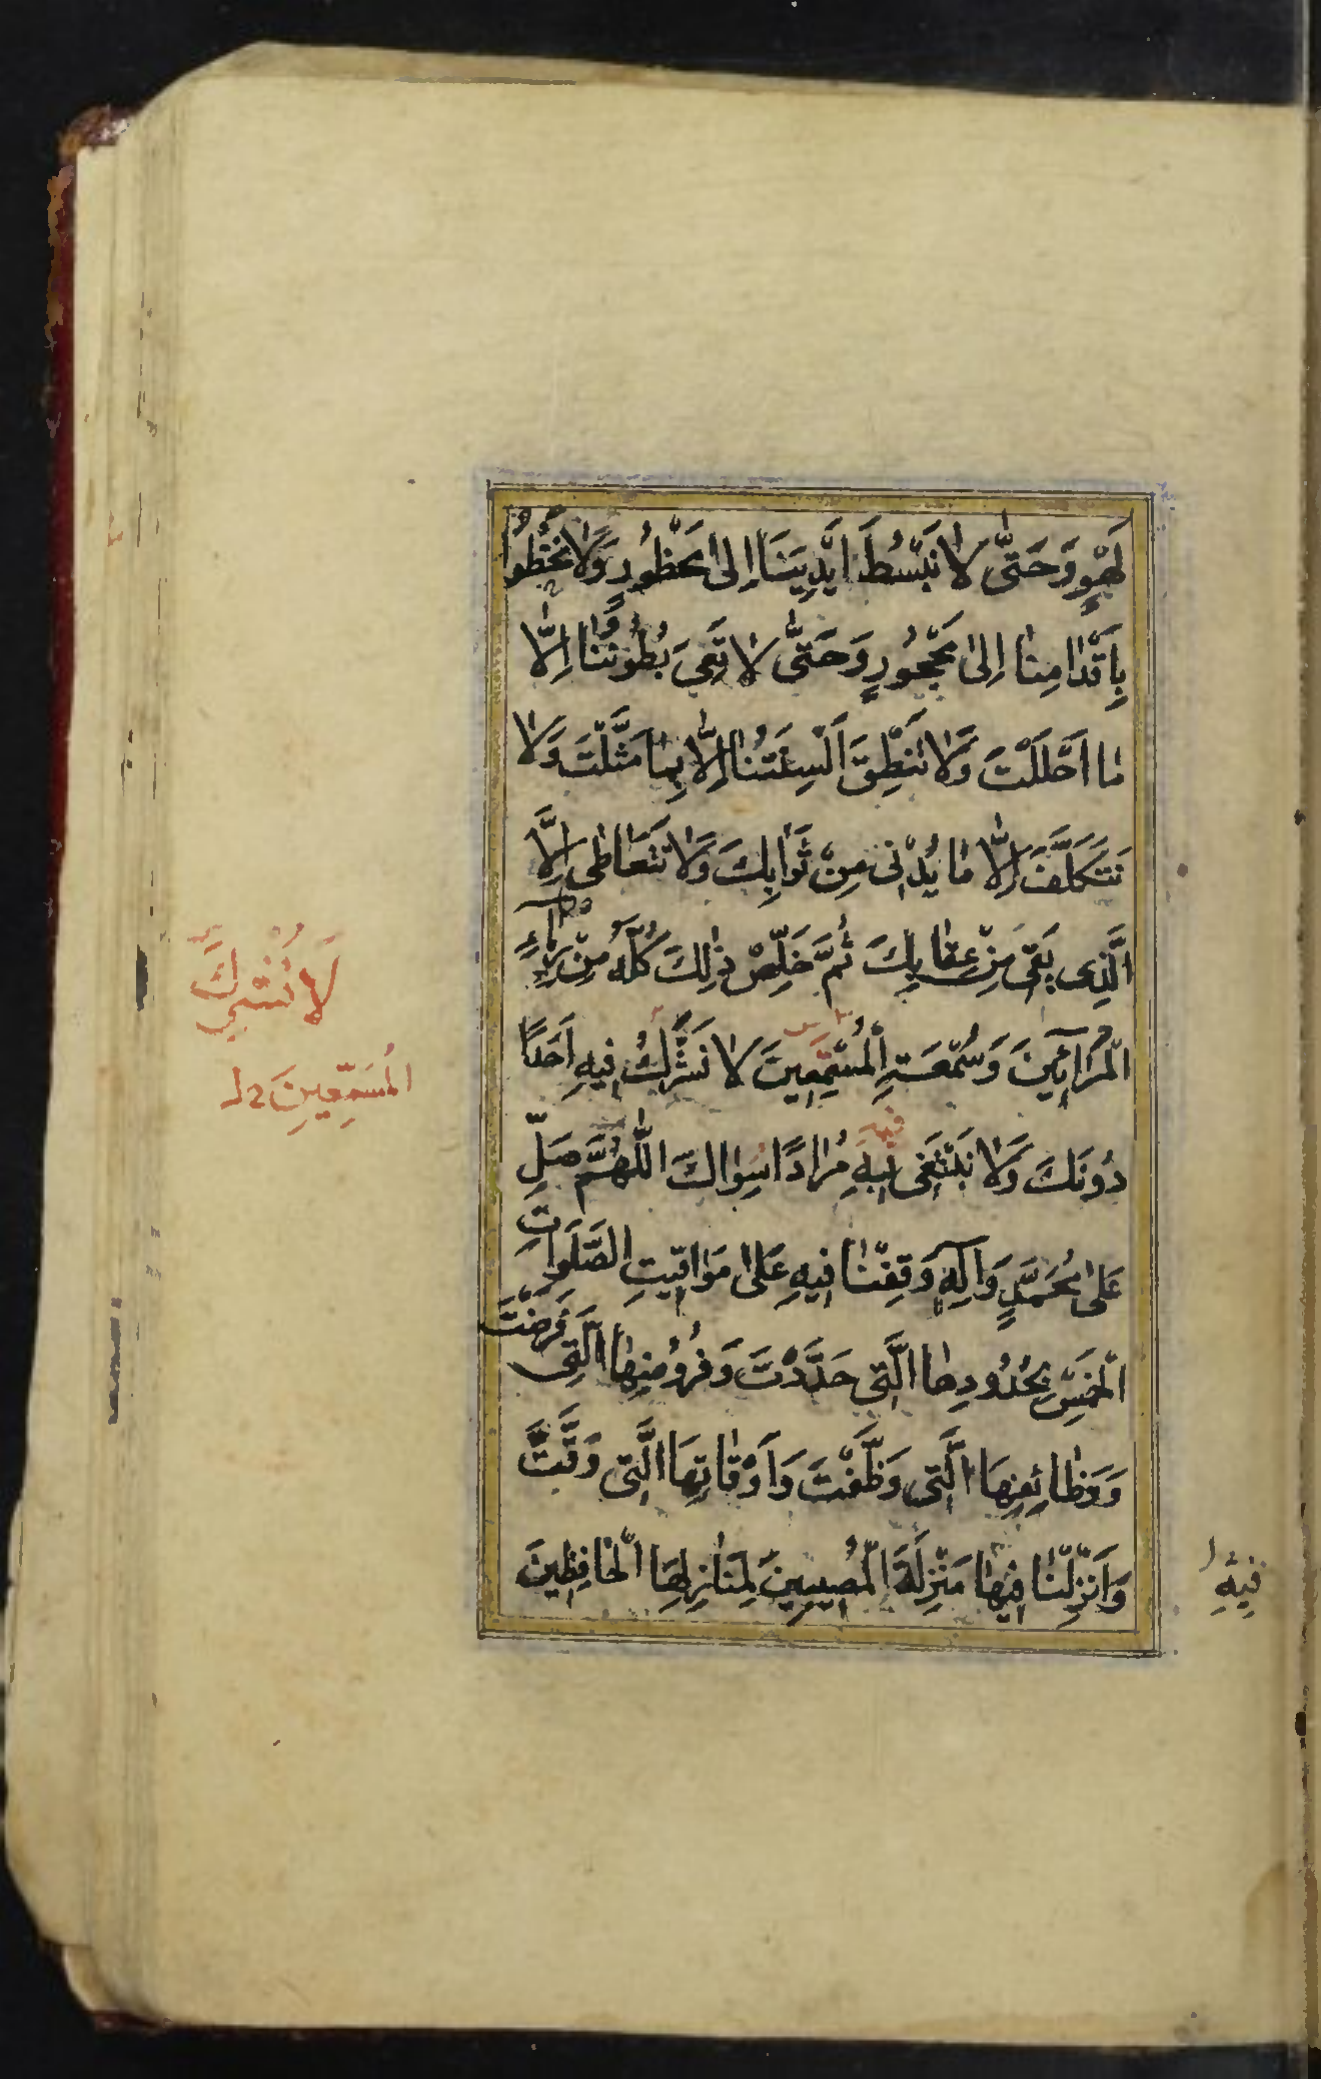 لَهْوٍ وَحَتّٰى لَا نَبْسُطَ اَيْدِيَنَا اِلٰى مَحْظُورٍ وَلَا نَخْطُوَا
بِاَقْدَامِنَا اِلٰى مَحْجُورٍ وَحَتّٰى لَا تَعِيَ بُطُونُنَا اِلَّا
مَا اَحْلَلْتَ وَلَا تَنْطِقَ اَلْسِنَتُنَا اِلَّا بِمَا مَثَّلْتَ وَلَا
نَتَكَلَّفَ اِلَّا مَا يُدْنِى مِنْ ثَوَابِكَ وَلَا نَتَعَاطٰى اِلَّا
الَّذِى يَقِى مِنْ عِقَابِكَ ثُمَّ خَلِّصْ ذٰلِكَ كُلَّهُ مِنْ رِئَاءِ
الْمُرَائِينَ وَسُمْعَةِ الْمُسْتَمِعِينَ لَا نَشْرَكُ فِيهِ اَحَدًا
دُونَكَ وَلَا نَبْتَغِى بِهِ مُرَادًا سِوَاكَ اَللّٰهُمَّ صَلِّ
فيه
عَلٰى مُحَمَّدٍ وَآلِهِ وَقِفْنَا فِيهِ عَلٰى مَوَاقِيتِ الصَّلَوَاتِ
الْخَمْسِ بِحُدُودِهَا الَّتِى حَدَّدْتَ وَفُرُوضِهَا الَّتِى فَرَضْتَ
وَوَظَائِفِهَا الَّتِى وَظَّفْتَ وَاَوْقَاتِهَا الَّتِى وَقَّتَّ
وَاَنْزِلْنَا فِيهَا مَنْزِلَةَ الْمُصِيبِينَ لِمَنَازِلِهَا الْحَافِظِينَ
لَا نُشْرِكَ
الْمُسَمِّعِينَ
فِيهِ